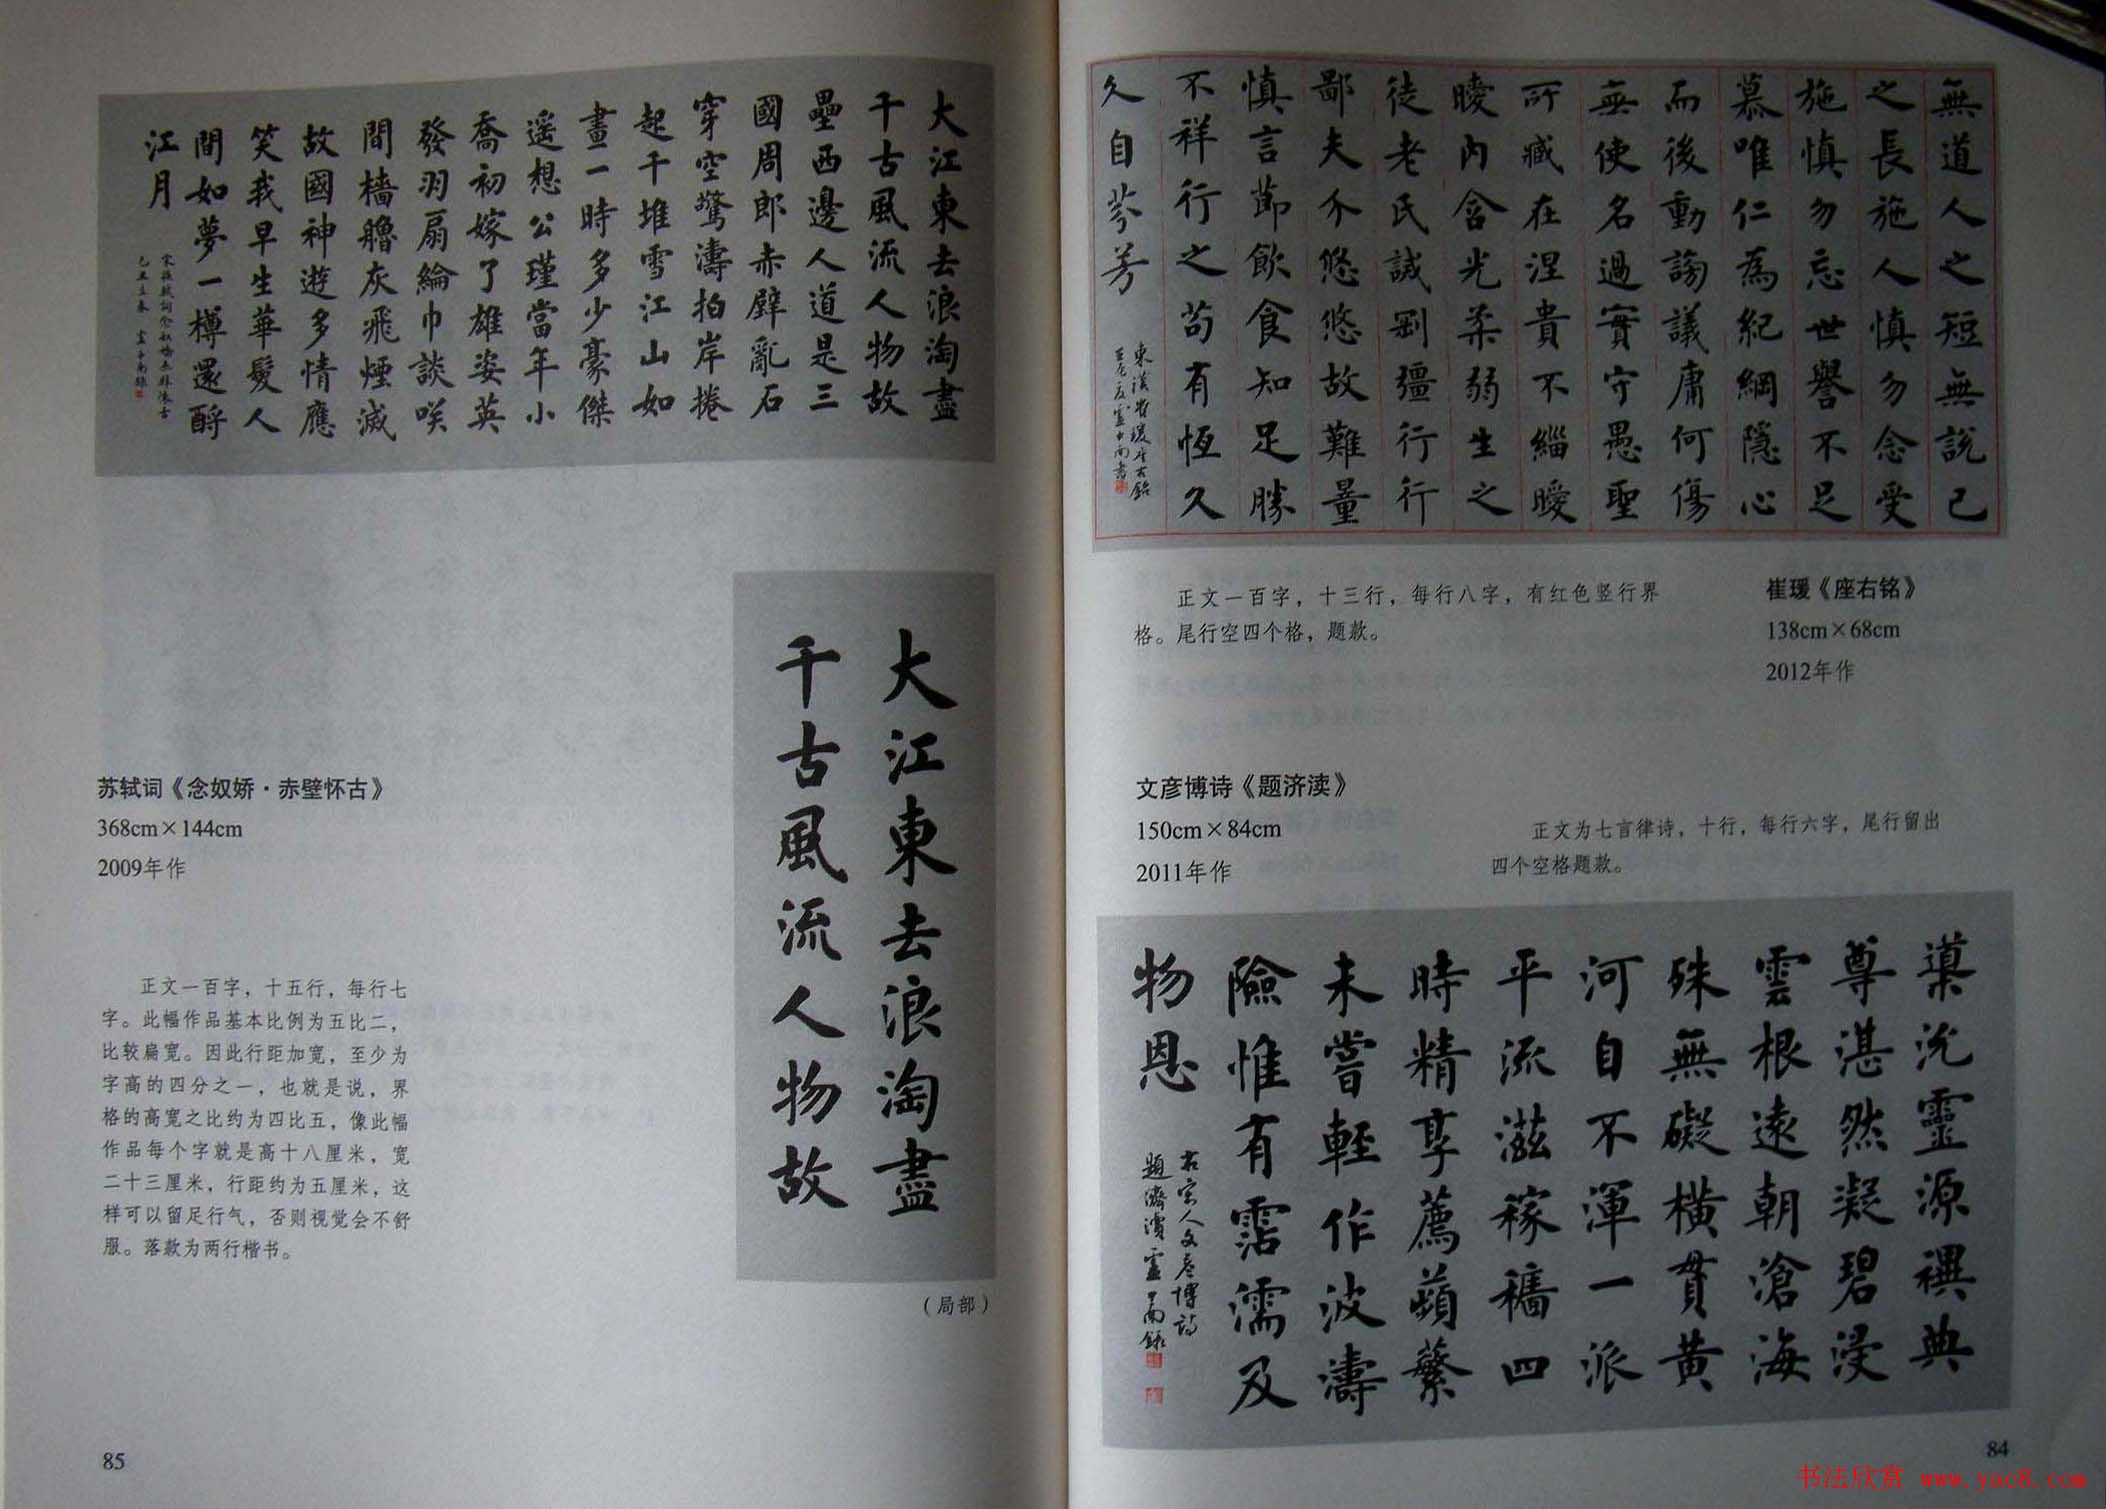 無道人之短無說己
之長施人慎勿念受
施慎勿忘世譽不足
慕唯仁為紀綱隱心
而後動謗議庸何傷
無使名過實守愚聖
所臧在涅貴不緇曖
曖内含光柔弱生之
徒老氏誡剛彊行行
鄙夫介悠悠故難量
慎言節飲食知足勝
不祥行之苟有恆久
久自芬芳
東漢崔瑗座右銘
壬辰夏盧中南書
崔瑗《座右铭》
138cm×68cm
2012年作
正文一百字，十三行，每行八字，有红色竖行界
格。尾行空四个格，题款。
文彦博诗《题济渎》
150cm×84cm
2011年作
正文为七言律诗，十行，每行六字，尾行留出
四个空格题款。
導沇靈源禩典
尊湛然凝碧浸
雲根遠朝滄海
殊無礙橫貫黃
河自不渾一派
平流滋稼穡四
時精享薦蘋蘩
未嘗輕作波濤
險惟有霑濡及
物恩
右宋人文彥博詩
題濟瀆盧中南錄
84
大江東去浪淘盡
千古風流人物故
壘西邊人道是三
國周郎赤壁亂石
穿空驚濤拍岸捲
起千堆雪江山如
畫一時多少豪傑
遥想公瑾當年小
喬初嫁了雄姿英
發羽扇綸巾談咲
間檣艣灰飛煙滅
故國神遊多情應
笑我早生華髮人
間如夢一樽還酹
江月
宋蘇軾詞念奴嬌赤壁懷古
己丑立春 盧中南錄
大江東去浪淘盡
千古風流人物故
（局部）
苏轼词《念奴娇·赤壁怀古》
368cm×144cm
2009年作
正文一百字，十五行，每行七
字。此幅作品基本比例为五比二，
比较扁宽。因此行距加宽，至少为
字高的四分之一，也就是说，界
格的高宽之比约为四比五，像此幅
作品每个字就是高十八厘米，宽
二十三厘米，行距约为五厘米，这
样可以留足行气，否则视觉会不舒
服。落款为两行楷书。
85
书法欣赏 www.yac8.com